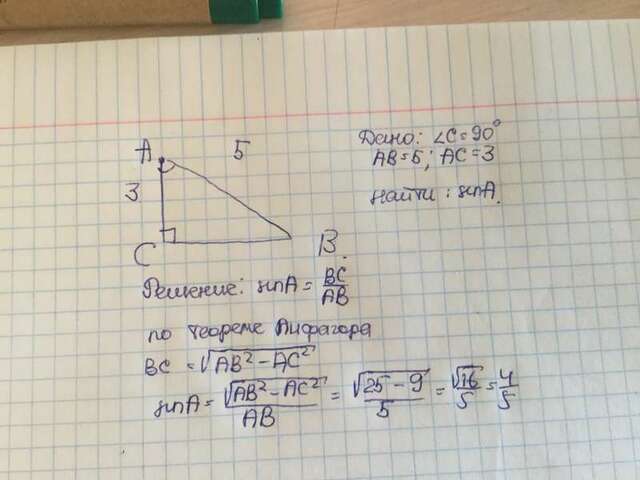 A
5
3
C
B.
Дано: ∠C=90°
AB=5; AC=3
Найти: sinA.
Решение: sinA = BC/AB
по теореме Пифагора
BC = √(AB²−AC²)
sinA = √(AB²−AC²)/AB = √(25−9)/5 = √16/5 = 4/5